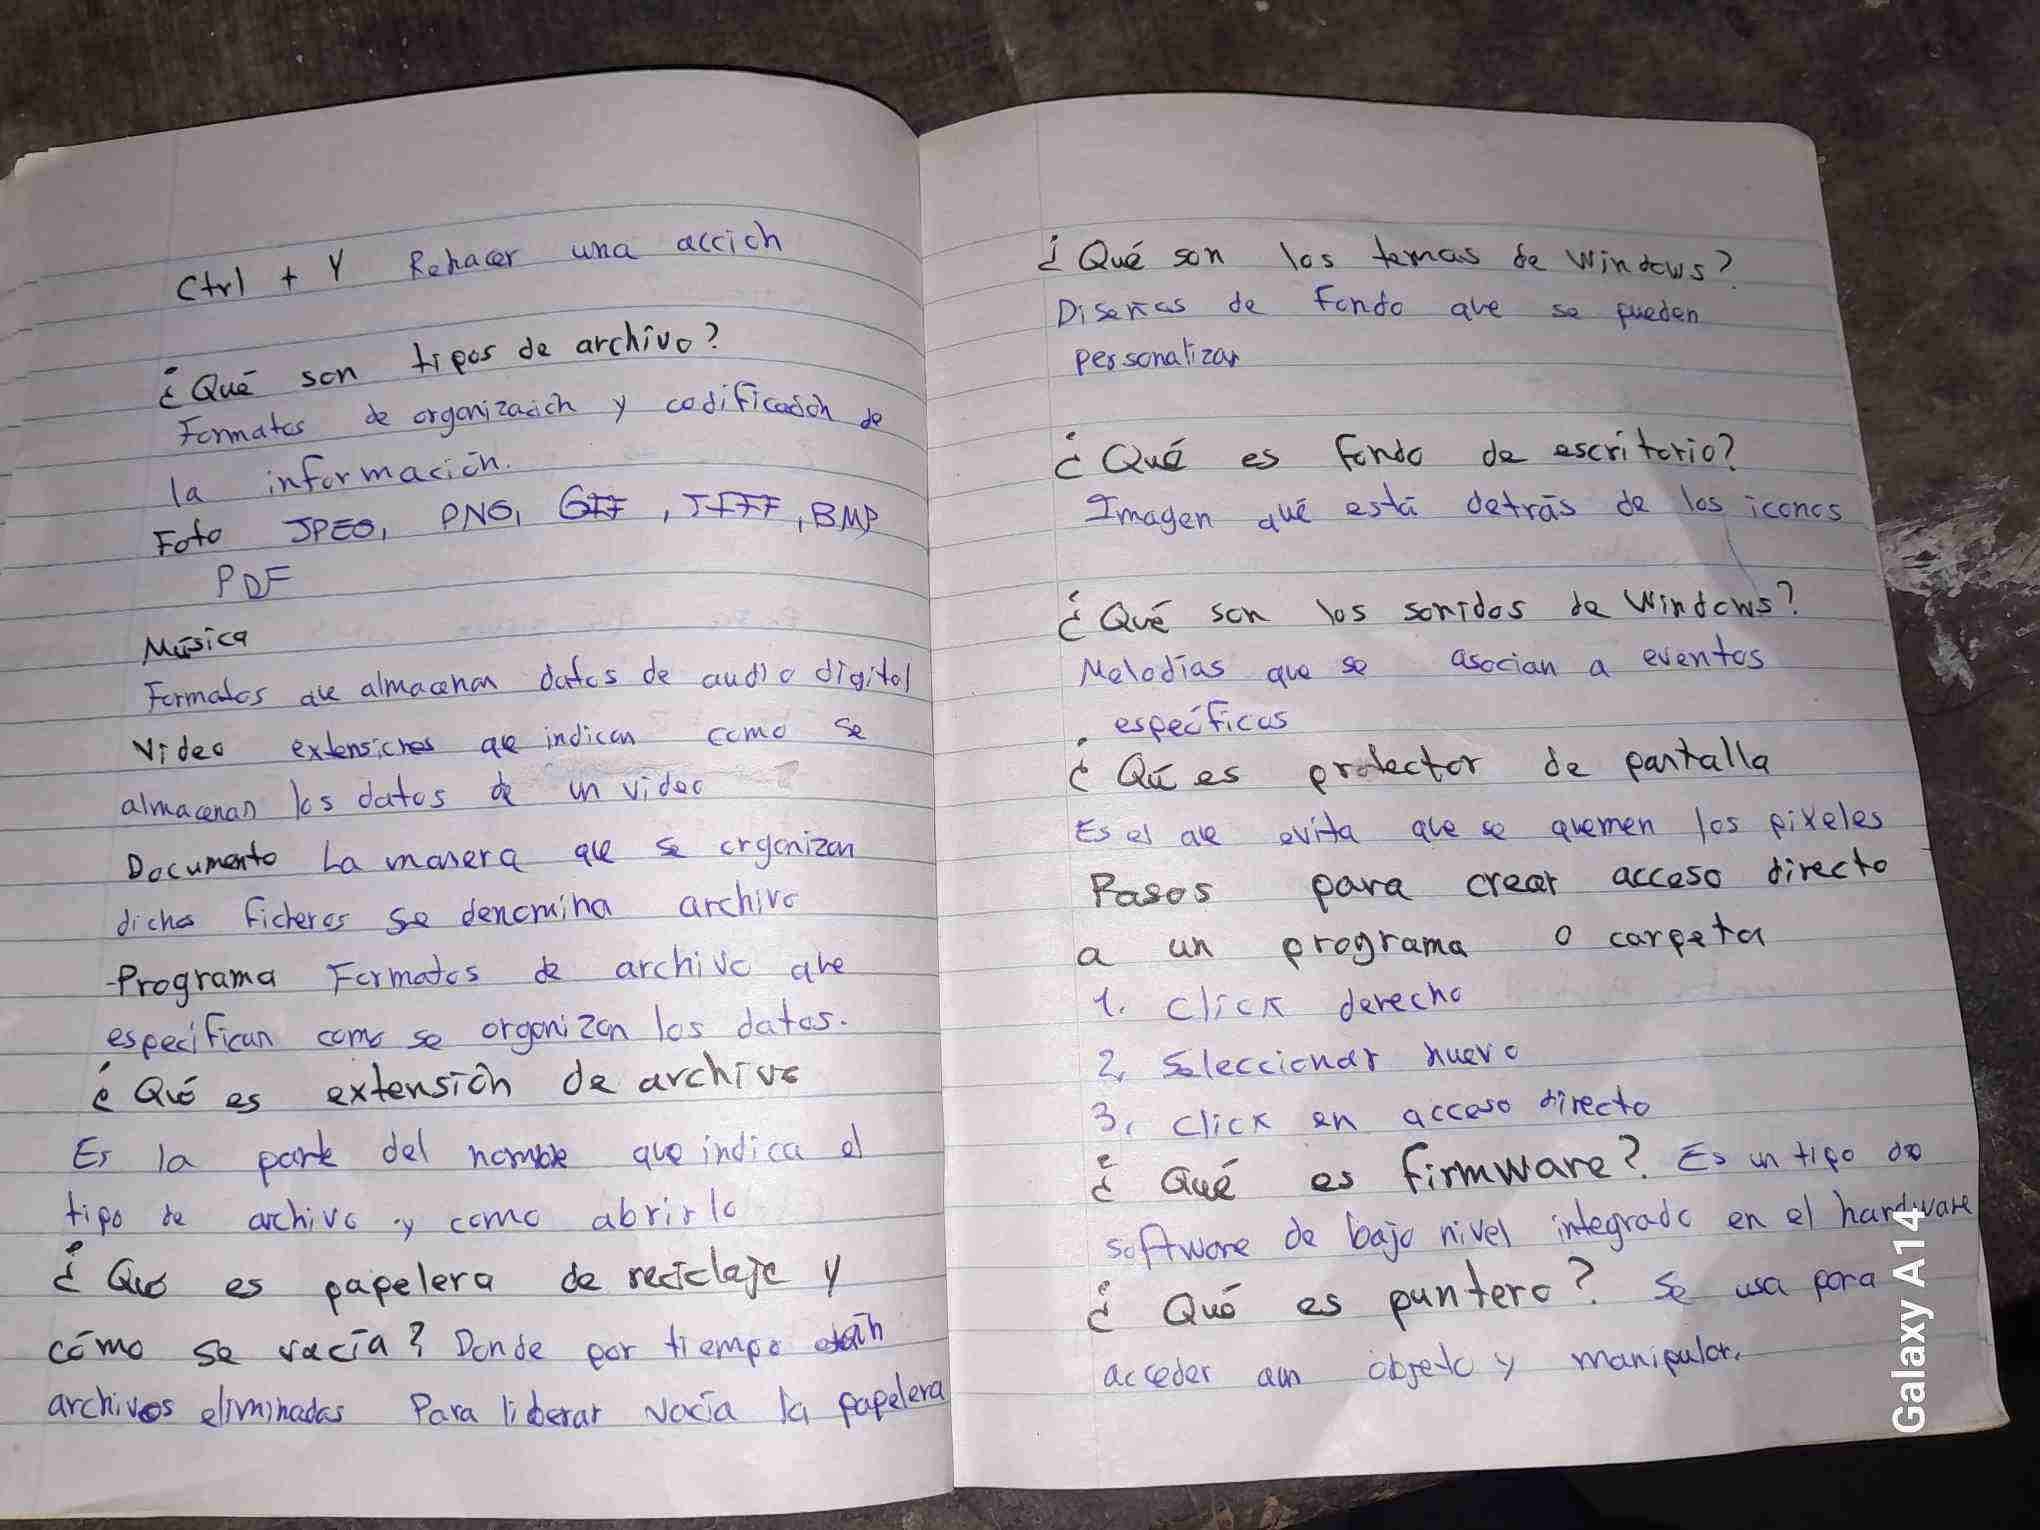 Ctrl + Y Rehacer una acción
¿Qué son tipos de archivo?
Formatos de organización y codificación de
la información.
Foto JPEG, PNG, GIF, TIFF, BMP
PDF
Música
Formatos que almacenan datos de audio digital
Video extensiones que indican como se
almacenan los datos de un video
Documento La manera que se organizan
dichos ficheros se denomina archivo
-Programa Formatos de archivo que
especifican como se organizan los datos.
¿Qué es extensión de archivo
Es la parte del nombre que indica el
tipo de archivo y como abrirlo
¿Qué es papelera de reciclaje y
cómo se vacía? Donde por tiempo están
archivos eliminados Para liberar vacía la papelera
¿Qué son los temas de Windows?
Diseños de fondo que se pueden
personalizar
¿Qué es fondo de escritorio?
Imagen qué está detrás de los iconos
¿Qué son los sonidos de Windows?
Melodías que se asocian a eventos
específicos
¿Qú es protector de pantalla
Es el que evita que se quemen los pixeles
Pasos para crear acceso directo
a un programa o carpeta
1. Click derecho
2. Seleccionar nuevo
3. Click en acceso directo
¿Qué es firmware? Es un tipo de
software de bajo nivel integrado en el hardware
¿Qué es puntero? Se usa para
acceder aun objeto y manipular.
Galaxy A14